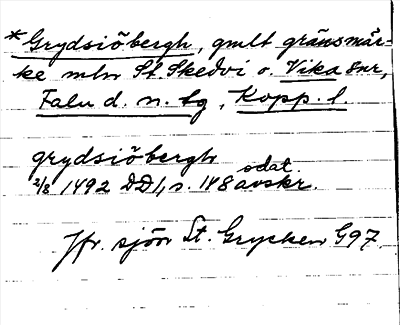 *Grydsiöbergh, gmlt gränsmär-
ke mlm St. Skedvi o. Vika snr,
Falu d. n. tg, Kopp. l.
grydsiöbergh
2/8 1492 DD1, s. 148 odat. avskr.
Jfr. sjön St. Grycken G97.